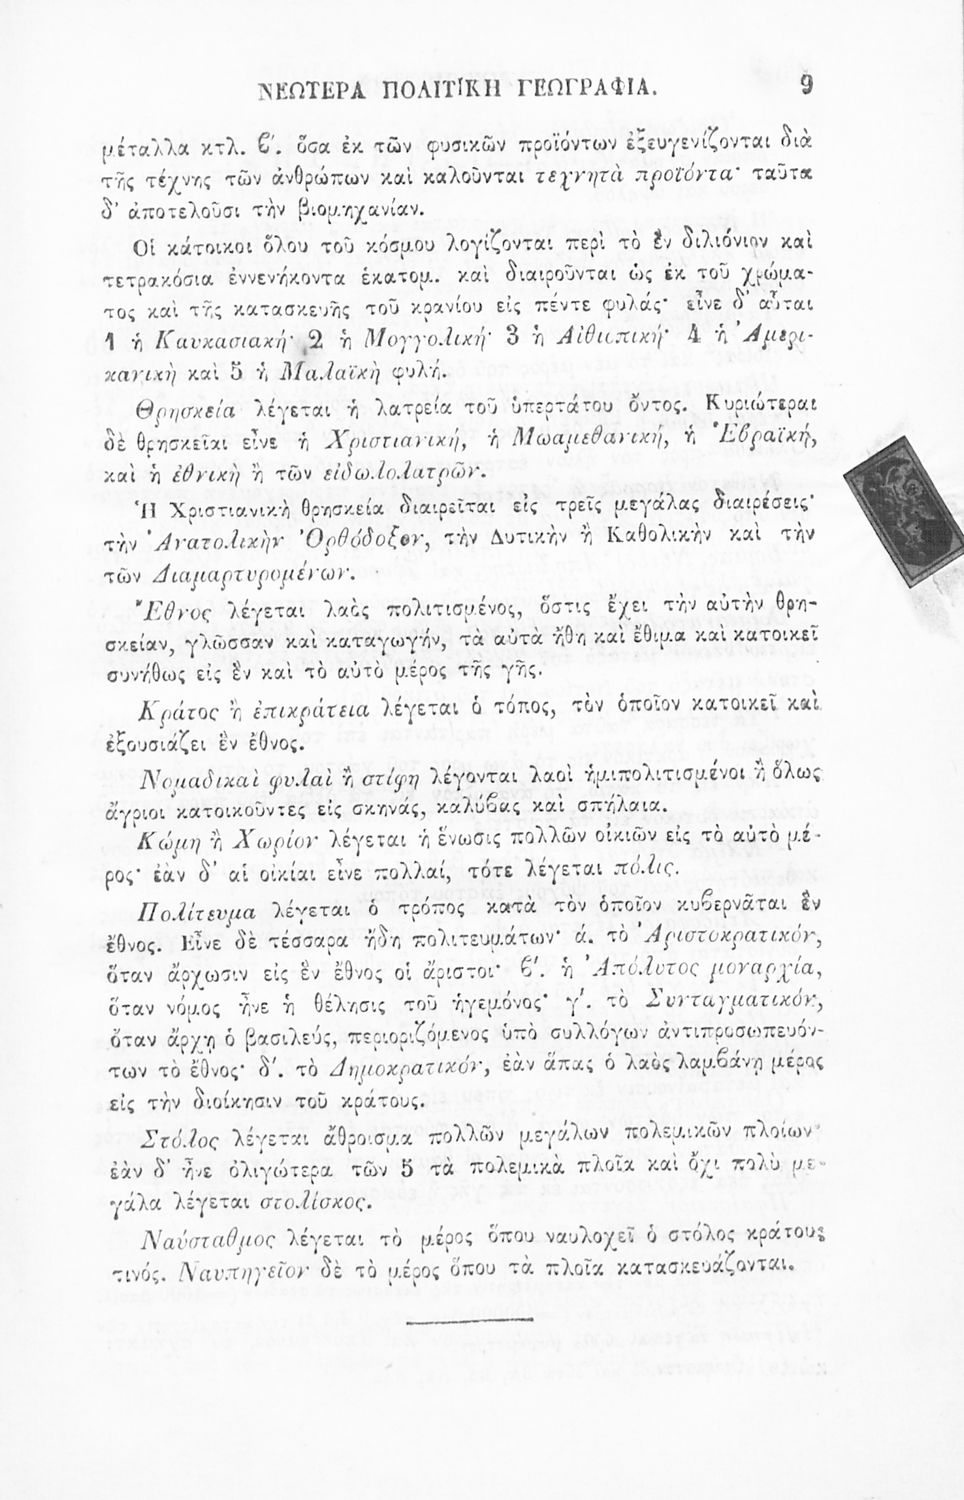 ΝΕΩΤΕΡΑ ΠΟΛΙΤΙΚΗ ΓΕΩΓΡΑΦΙΑ. 9
μέταλλα κτλ. ϐ′. ὅσα ἐκ τῶν φυσικῶν προϊόντων ἐξευγενίζονται διὰ
τῆς τέχνης τῶν ἀνθρώπων καὶ καλοῦνται τεχνητὰ προϊόντα· ταῦτα
δ' ἀποτελοῦσι τὴν βιομηχανίαν.
Οἱ κάτοικοι ὅλου τοῦ κόσμου λογίζονται περὶ τὸ ἓν διλιόνιον καὶ
τετρακόσια ἐννενήκοντα ἑκατομ. καὶ διαιροῦνται ὡς ἐκ τοῦ χρώμα-
τος καὶ τῆς κατασκευῆς τοῦ κρανίου εἰς πέντε φυλάς· εἶνε δ' αὗται
1 ἡ Καυκασιακή· 2 ἡ Μογγολική· 3 ἡ Αἰθιοπική· 4 ἡ Ἀμερι-
κανικὴ καὶ 5 ἡ Μαλαϊκὴ φυλή.
Θρησκεία λέγεται ἡ λατρεία τοῦ ὑπερτάτου ὄντος. Κυριώτεραι
δὲ θρησκεῖαι εἶνε ἡ Χριστιανική, ἡ Μωαμεθανική, ἡ Ἑϐραϊκή,
καὶ ἡ ἐθνικὴ ἢ τῶν εἰδωλολατρῶν.
Ἡ Χριστιανικὴ θρησκεία διαιρεῖται εἰς τρεῖς μεγάλας διαιρέσεις·
τὴν Ἀνατολικὴν Ὀρθόδοξον, τὴν Δυτικὴν ἢ Καθολικὴν καὶ τὴν
τῶν Διαμαρτυρομένων.
Ἔθνος λέγεται λαὸς πολιτισμένος, ὅστις ἔχει τὴν αὐτὴν θρη-
σκείαν, γλῶσσαν καὶ καταγωγήν, τὰ αὐτὰ ἤθη καὶ ἔθιμα καὶ κατοικεῖ
συνήθως εἰς ἓν καὶ τὸ αὐτὸ μέρος τῆς γῆς.
Κράτος ἢ ἐπικράτεια λέγεται ὁ τόπος, τὸν ὁποῖον κατοικεῖ καὶ
ἐξουσιάζει ἓν ἔθνος.
Νομαδικαὶ φυλαὶ ἢ στίφη λέγονται λαοὶ ἡμιπολιτισμένοι ἢ ὅλως
ἄγριοι κατοικοῦντες εἰς σκηνάς, καλύϐας καὶ σπήλαια.
Κώμη ἢ Χωρίον λέγεται ἡ ἕνωσις πολλῶν οἰκιῶν εἰς τὸ αὐτὸ μέ-
ρος· ἐὰν δ' αἱ οἰκίαι εἶνε πολλαί, τότε λέγεται πόλις.
Πολίτευμα λέγεται ὁ τρόπος κατὰ τὸν ὁποῖον κυϐερνᾶται ἓν
ἔθνος. Εἶνε δὲ τέσσαρα ἤδη πολιτευμάτων· ά. τὸ Ἀριστοκρατικόν,
ὅταν ἄρχωσιν εἰς ἓν ἔθνος οἱ ἄριστοι· ϐ′. ἡ Ἀπόλυτος μοναρχία,
ὅταν νόμος ἦνε ἡ θέλησις τοῦ ἡγεμόνος· γ′. τὸ Συνταγματικόν,
ὅταν ἄρχῃ ὁ βασιλεύς, περιοριζόμενος ὑπὸ συλλόγων ἀντιπροσωπευόν-
των τὸ ἔθνος· δ′. τὸ Δημοκρατικόν, ἐὰν ἅπας ὁ λαὸς λαμϐάνῃ μέρος
εἰς τὴν διοίκησιν τοῦ κράτους.
Στόλος λέγεται ἄθροισμα πολλῶν μεγάλων πολεμικῶν πλοίων·
ἐὰν δ' ἦνε ὀλιγώτερα τῶν 5 τὰ πολεμικὰ πλοῖα καὶ ὄχι πολὺ με-
γάλα λέγεται στολίσκος.
Ναύσταθμος λέγεται τὸ μέρος ὅπου ναυλοχεῖ ὁ στόλος κράτους
τινός. Ναυπηγεῖον δὲ τὸ μέρος ὅπου τὰ πλοῖα κατασκευάζονται.